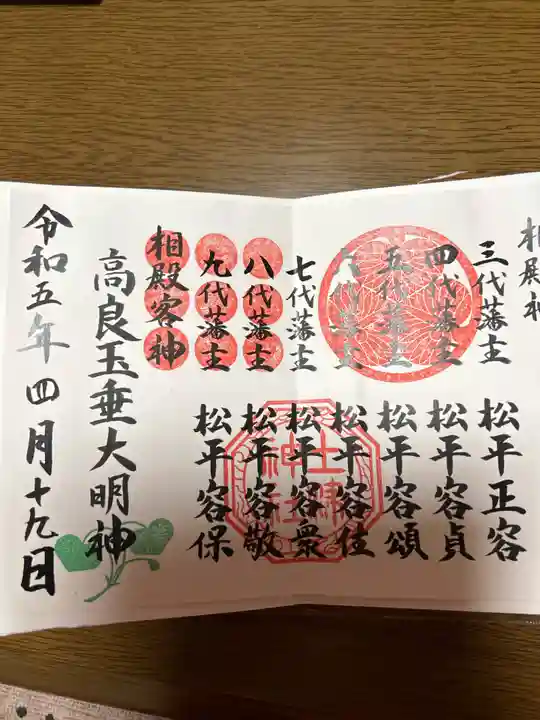 相殿神
三代藩主 松平正容
四代藩主 松平容貞
五代藩主 松平容頌
六代藩主 松平容住
七代藩主 松平容衆
八代藩主 松平容敬
九代藩主 松平容保
相殿客神
高良玉垂大明神
令和五年四月十九日
土津神社